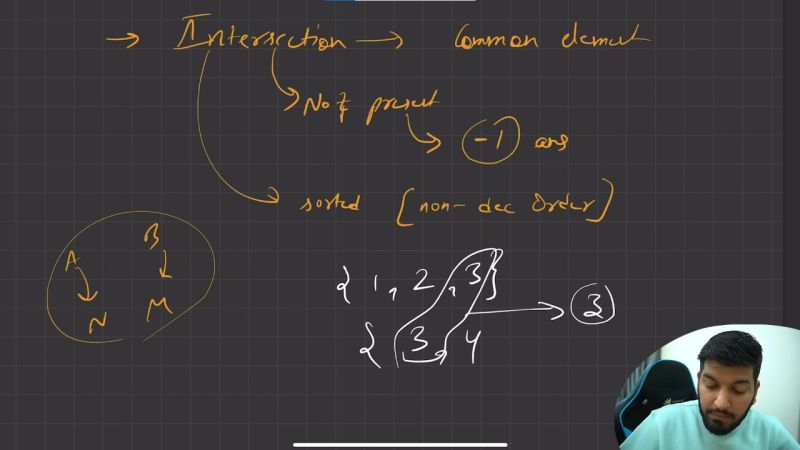 → Intersection → Common element
Not present
→ -1 ans
sorted [non-dec Order]
A B
N M
{1, 2, 3}
→ 3
{3, 4